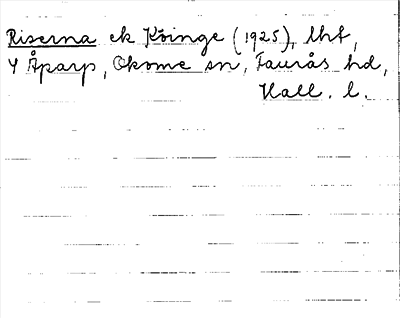 Riserna ek Köinge (1925), lht,
4 Åparp, Okome sn, Faurås hd,
Hall. l.